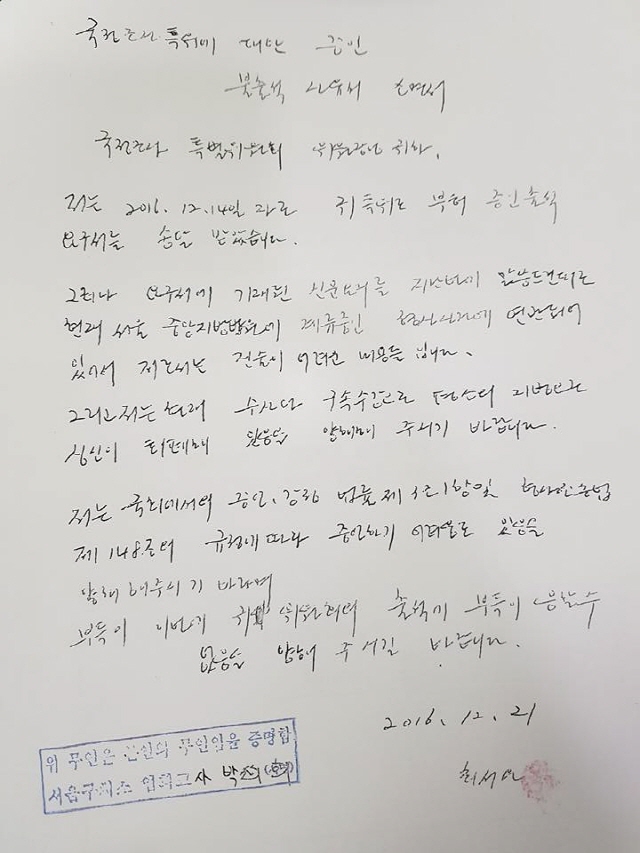 국정조사 특위에 대한 증인
불출석 사유서 소명서
국정조사 특별위원회 위원장님 귀하.
저는 2016. 12. 14일 자로 귀 특위로 부터 증인출석
요구서를 송달 받았습니다.
그러나 요구서에 기재된 신문요지를
현재 서울 중앙지방법원에 계류중인 형사사건에 연관되어
있어서 저로서는 진술이 어려운 내용들 입니다.
그리고 저는 현재 수사와 구속수감으로 평소의 지병으로
심신이 피폐해 있음을 양해해 주시기 바랍니다.
저는 국회에서의 증언, 감정 법률 제 3조 1항 및 형사소송법
제 148조의 규정에 따라 증언하기 어려움으로 있음을
양해해주시기 바라며
부득이 이번에 귀 위원회의 출석에 부득이 응할수
없음을 양해 주시길 바랍니다.
2016. 12. 21
최서원
위 무인은 본인의 무인임을 증명함
서울구치소 교사 박